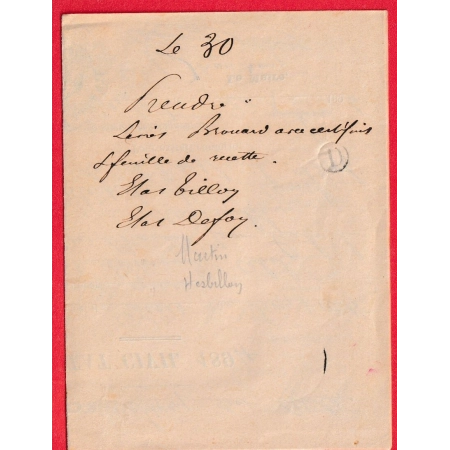 Le 30
Prendre
Brouard avec certificats
& feuille de recette.
Etat Tilloy
Etat Defoy.
D
Martin
Hesbilloy